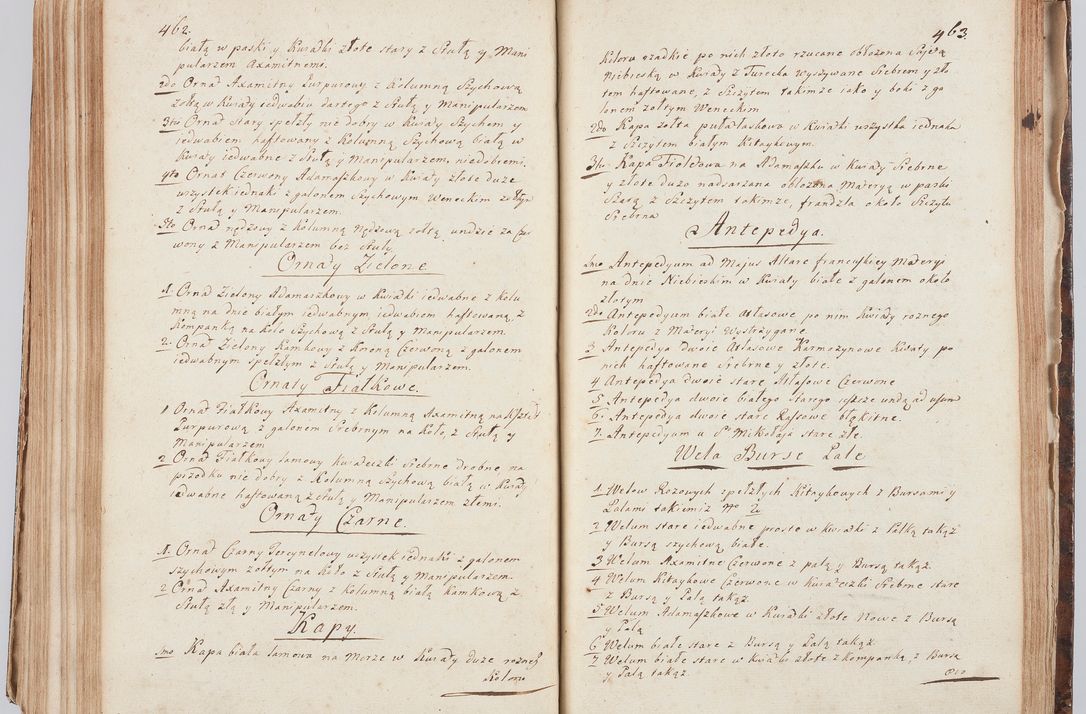 462.
białą w paski y Kwiatki złote stary z Stułą y Mani
pularzem Axamitnemi.
2do Ornat Axamitny Purpurowy z Kolumną Szychową
zołtą w Kwiaty iedwabiu dartego z Stułą y Manipularzem
3tio Ornat stary spełzły nie dobry w Kwiaty Szychem y
iedwabiem haftowany z Kolumną Szychową białą w
Kwiaty iedwabne z Stułą y Manipularzem, niedobremi.
4to Ornat Czerwony Adamaszkowy w Kwiaty złote duze
wszystek iednaki z galonem Szychowym Weneckim
z Stułą y Manipularzem.
5to Ornat nędzowy z Kolumną Nędzową zołtą, undzie za Czer
wony z Manipularzem bez Stuły
Ornaty Zielone
1. Ornat Zielony Adamaszkowy w Kwiatki iedwabne z Kolu
mną na dnie białym iedwabnym iedwabiem haftowaną, z
Kompanką na Koło Szychową z Stułą y Manipularzem.
2. Ornat Zielony Kamkowy z Koroną Czerwoną z galonem
iedwabnym spełzłym z Stułą y Manipularzem.
Ornaty Fiałkowe.
1 Ornat Fiałkowy Axamitny z Kolumną Axamitną na Kształt
Purpurową z galonem Srebrnym na Koło, z Stułą y
Manipularzem
2 Ornat Fiałkowy lamowy Kwiateczki Srebrne drobne, na
przodku nie dobry z Kolumną Szychową białą w Kwiaty
iedwabne haftowaną z Stułą y Manipularzem złemi.
Ornaty Czarne.
1. Ornat Czarny Tercynelowy wszystek iednaki z galonem
szychowym zołtym na Koło z Stułą y Manipularzem.
2 Ornat Axamitny Czarny z Kolumną białą Kamkową, z
Stułą złą y Manipularzem.
Kapy.
1mo Kapa biała lamowa na Morze w Kwiaty duze roznego
Koloru
463.
Koloru rzadkie po nich złoto rzucane obłozona
Niebieską w Kwiaty z Turecka wyszywane Srebrem y zło
tem haftowane, z Szczytem takimze iako y boki z ga
lonem zołtym Weneckim
2do Kapa zołta pułatłaskowa w Kwiatki wszystka iednaka
z Szczytem białym Kitaykowym.
3tio Kapa Fioletowa na Adamaszku w Kwiaty Srebrne
y złote duzo nadszarzana obłozona Materyą w paski
Szarą z Szczytem takimze, frandzla około Szczytu
Srebrna
Antepedya.
1mo Antepedyum ad Majus Altare francuskiey Materyi
na dnie Niebieskim w Kwiaty białe z galonem około
złotym
2do Antepedyum białe Atłasowe po nim Kwiaty roznego
Koloru z Materyi Wystrzygane
3. Antepedya dwoie Atłasowe Karmazynowe Kwiaty po
nich haftowane Srebrne y złote.
4 Antepedya dwoie stare Atłasowe Czerwone
5 Antepedya dwoie białego Starego ad usum
6. Antepedya dwoie stare Rasowe błękitne.
7. Antepedyum u So Mikołaja stare złe.
Wela Burse Pale
1. Welow Rozowych spełzłych Kitaykowych z Bursami y
Palami takiemiz No 2.
2 Welum stare iedwabne proste w kwiatki z Palką takąz
y Bursą szychową białe.
3 Welum Axamitne Czerwone z palą y Bursą takąz.
4 Welum Kitaykowe Czerwone w kwiateczki Srebrne stare
z Bursą y Palą takąz.
5 Welum Adamaszkowe w Kwiatki złote Nowe z Bursą
y Palą
6 Welum białe stare z Bursą y Palą takąz.
7 Welum białe stare w Kwiatki złote z Kompanką, z Bursą
y Palą takąz.
8vo